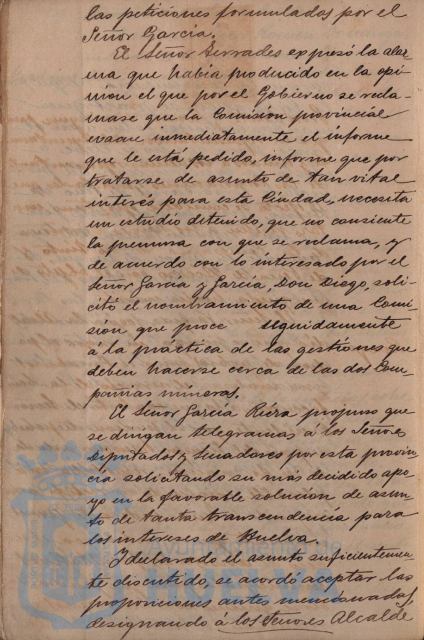 las peticiones formuladas por el
Señor García.
El Señor Serrades expresó la alar-
ma que había producido en la opi-
nion el que por el Gobierno se recla-
mase que la Comisión provincial
evacue inmediatamente el informe
que le está pedido, informe que por
tratarse de asunto de tan vital
interés para esta Ciudad, necesita
un estudio detenido, que no consiente
la premura con que se reclama, y
de acuerdo con lo interesado por el
Señor García y García, Don Diego, soli-
citó el nombramiento de una Comi-
sión que proce seguidamente
á la práctica de las gestiones que
deben hacerse cerca de las dos Com-
pañias mineras.
El Señor García Riera propuso que
se dirijan telegramas á los Señores
Diputados y Senadores por esta provin-
cia solicitando su más decidido apo-
yo en la favorable solucion de asun-
to de tanta transcendencia para
los intereses de Huelva.
I declarado el asunto suficientemen-
te discutido, se acordó aceptar las
proposiciones antes mencionadas,
designando á los Señores Alcalde